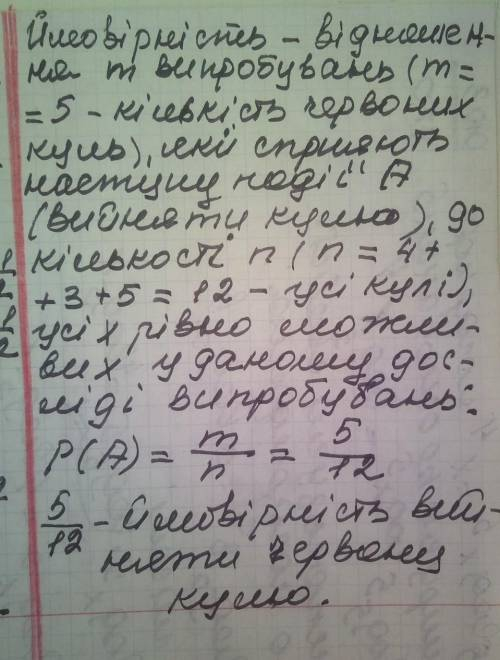 Ймовірність – відношен-
ня m випробувань (m =
= 5 – кількість червоних
куль), які сприяють
наступу події A
(вийняти кулю), до
кількості n (n = 4 +
+ 3 + 5 = 12 – усі кулі),
усіх рівно можли-
вих у даному дос-
ліді випробувань:
P(A) = m/n = 5/12
5/12 – ймовірність вий-
няти червону
кулю.